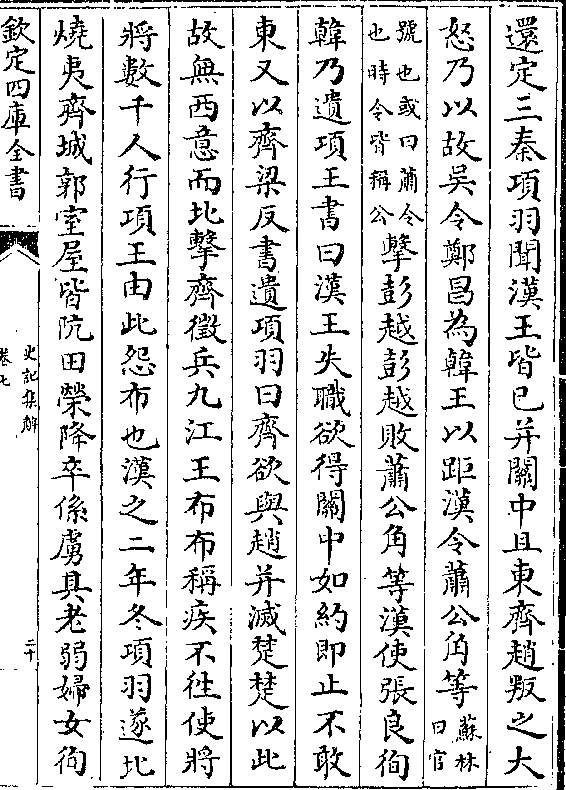 還定三秦項羽聞漢王皆已并關中且東齊趙叛之大
怒乃以故吳令鄭昌為韓王以距漢令蕭公角等蘇林曰官
號也或曰蕭令也時令皆稱公擊彭越彭越敗蕭公角等漢使張良徇
韓乃遺項王書曰漢王失職欲得關中如約即止不敢
東又以齊梁反書遺項羽曰齊欲與趙并滅楚楚以此
故無西意而北擊齊徵兵九江王布布稱疾不徃使將
將數千人行項王由此怨布也漢之二年冬項羽遂北
燒夷齊城郭室屋皆阬田榮降卒係虜其老弱婦女徇
欽定四庫全書
史記集解
卷七
二十